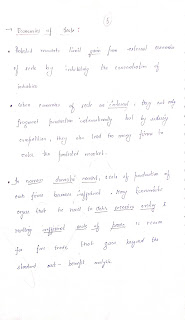 5
→ Economies of Scale :
• Protected markets limit gains from external economies
of scale by inhibiting the concentration of
industries.
• When economies of scale are internal, they not only
fragment production internationally, but by reducing
competition, they also lead too many firms to
enter the protected market.
• In narrow domestic market, scale of production of
each firm becomes inefficient. Many Economists
argue that the need to
inefficient scale of production is reason
for free trade that goes beyond the
standard cost-benefit analysis.